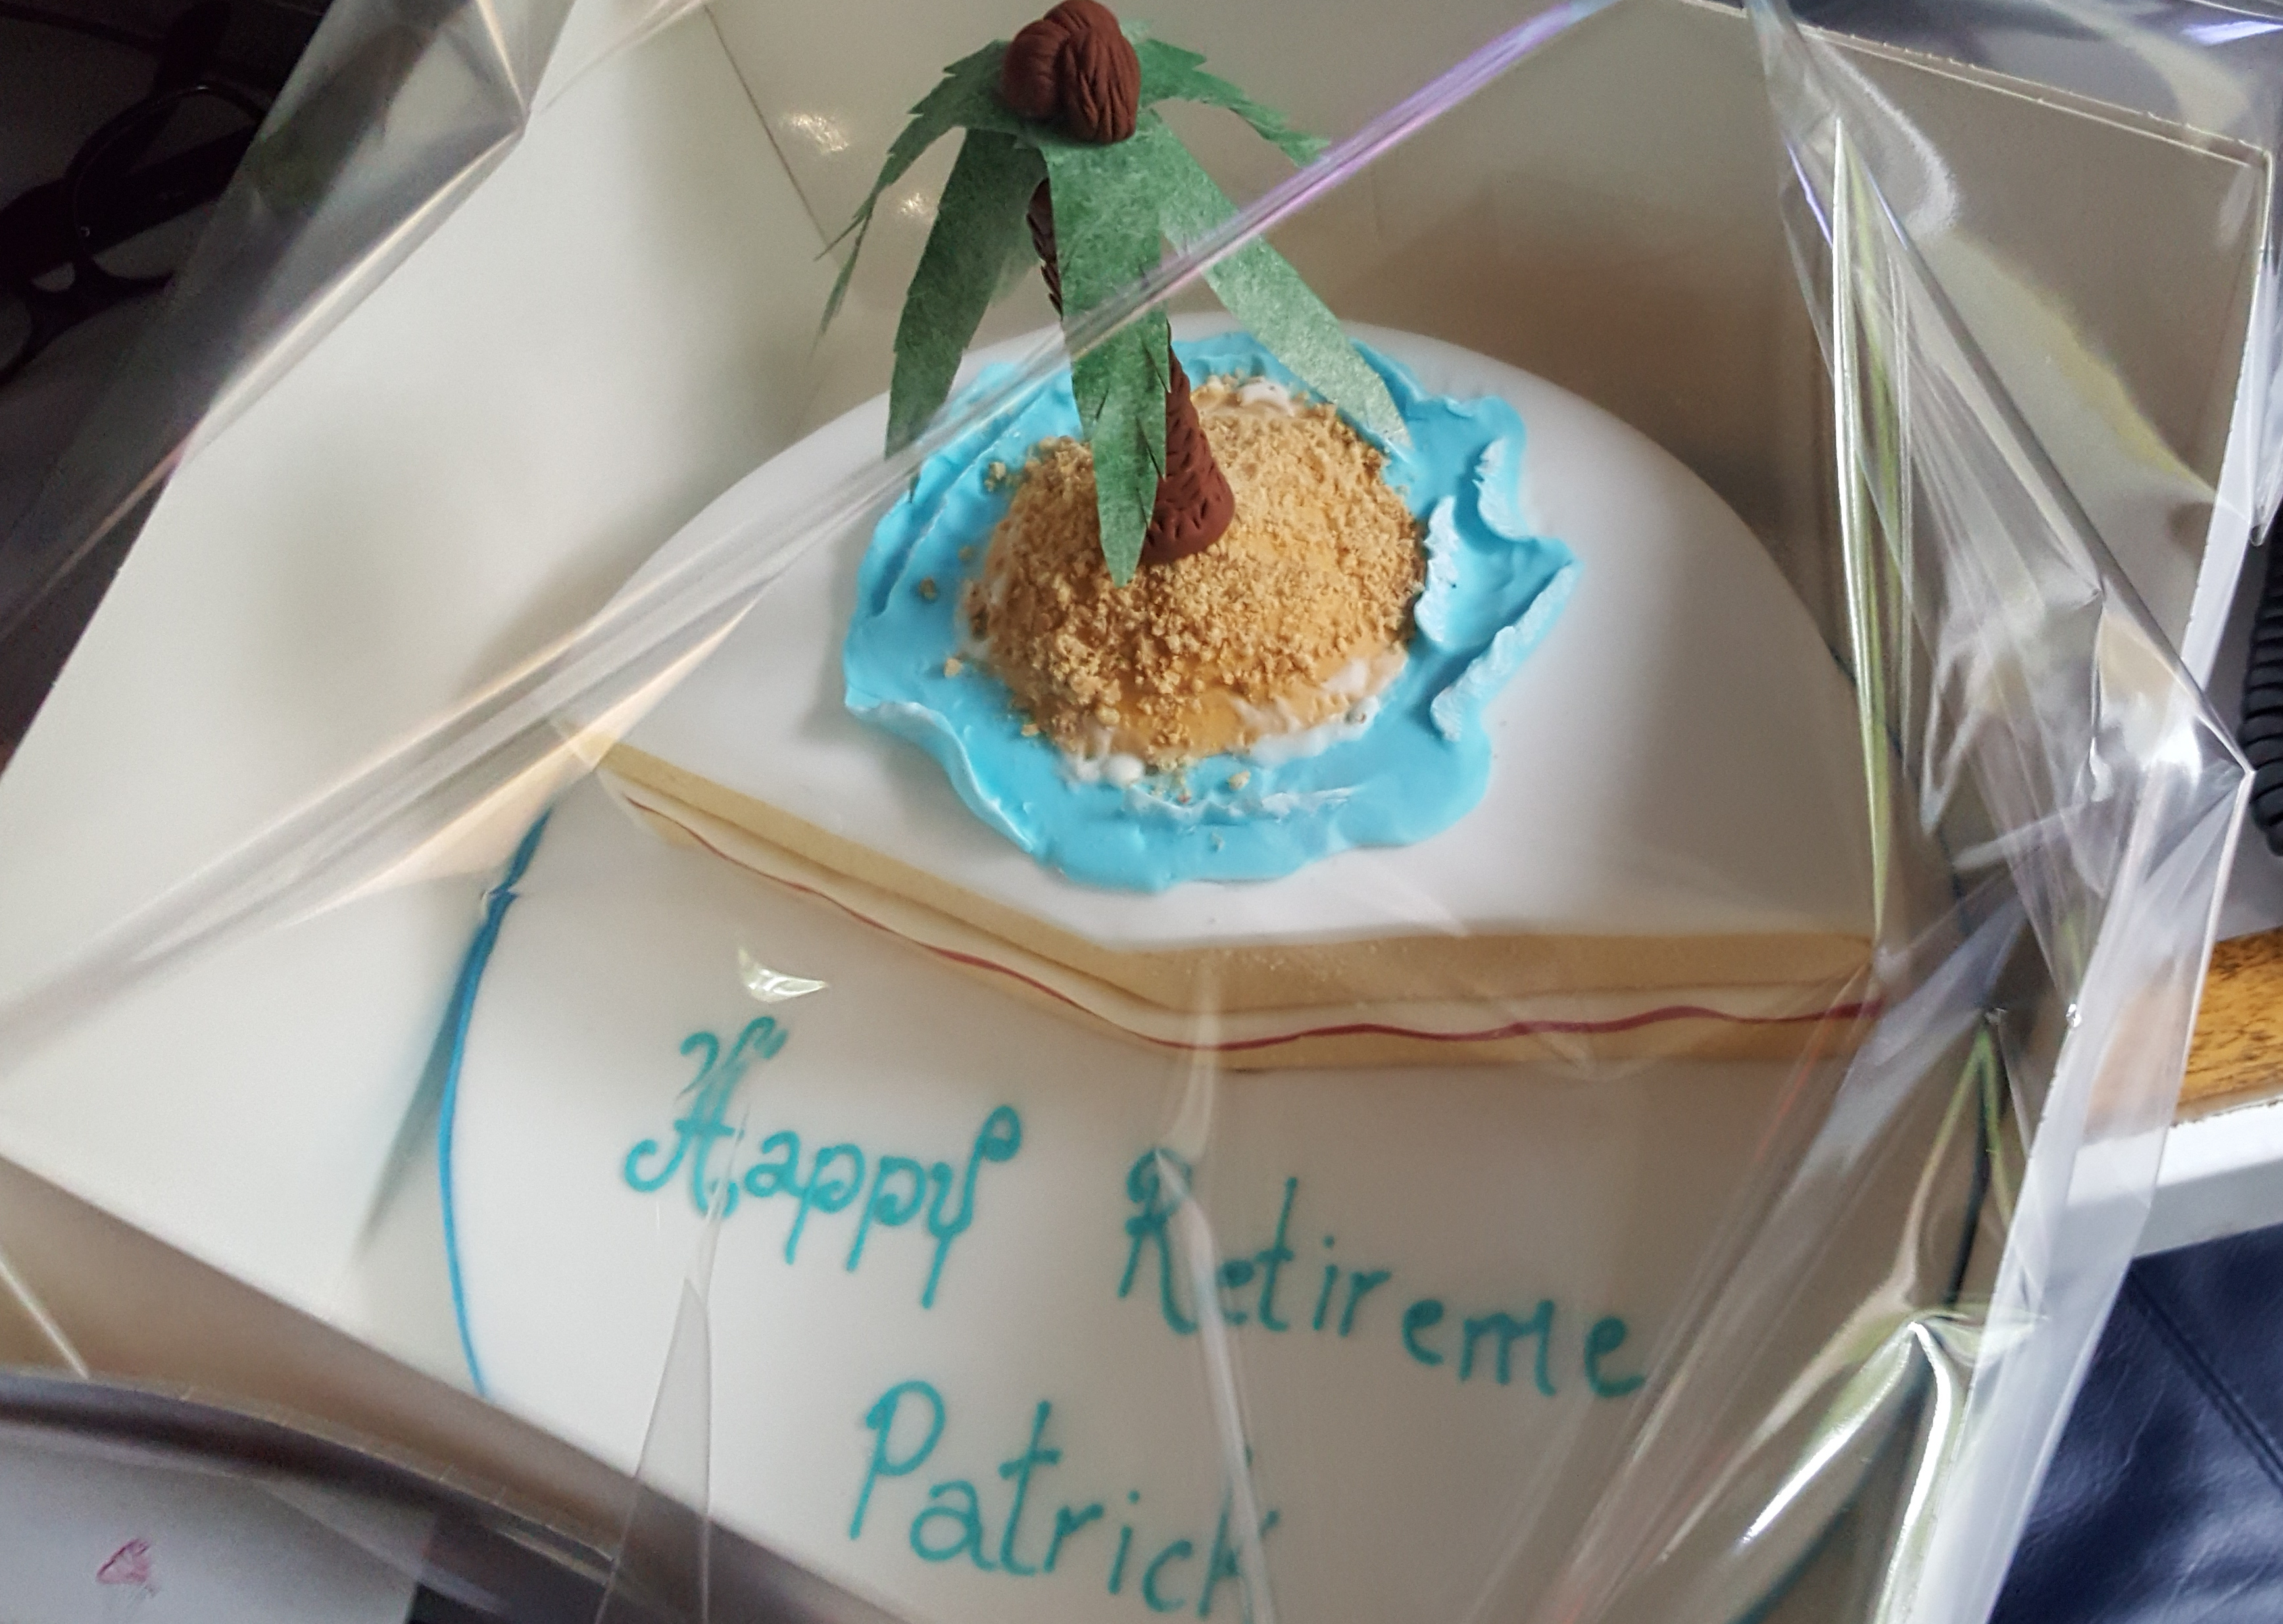 Happy Retireme
Patrick